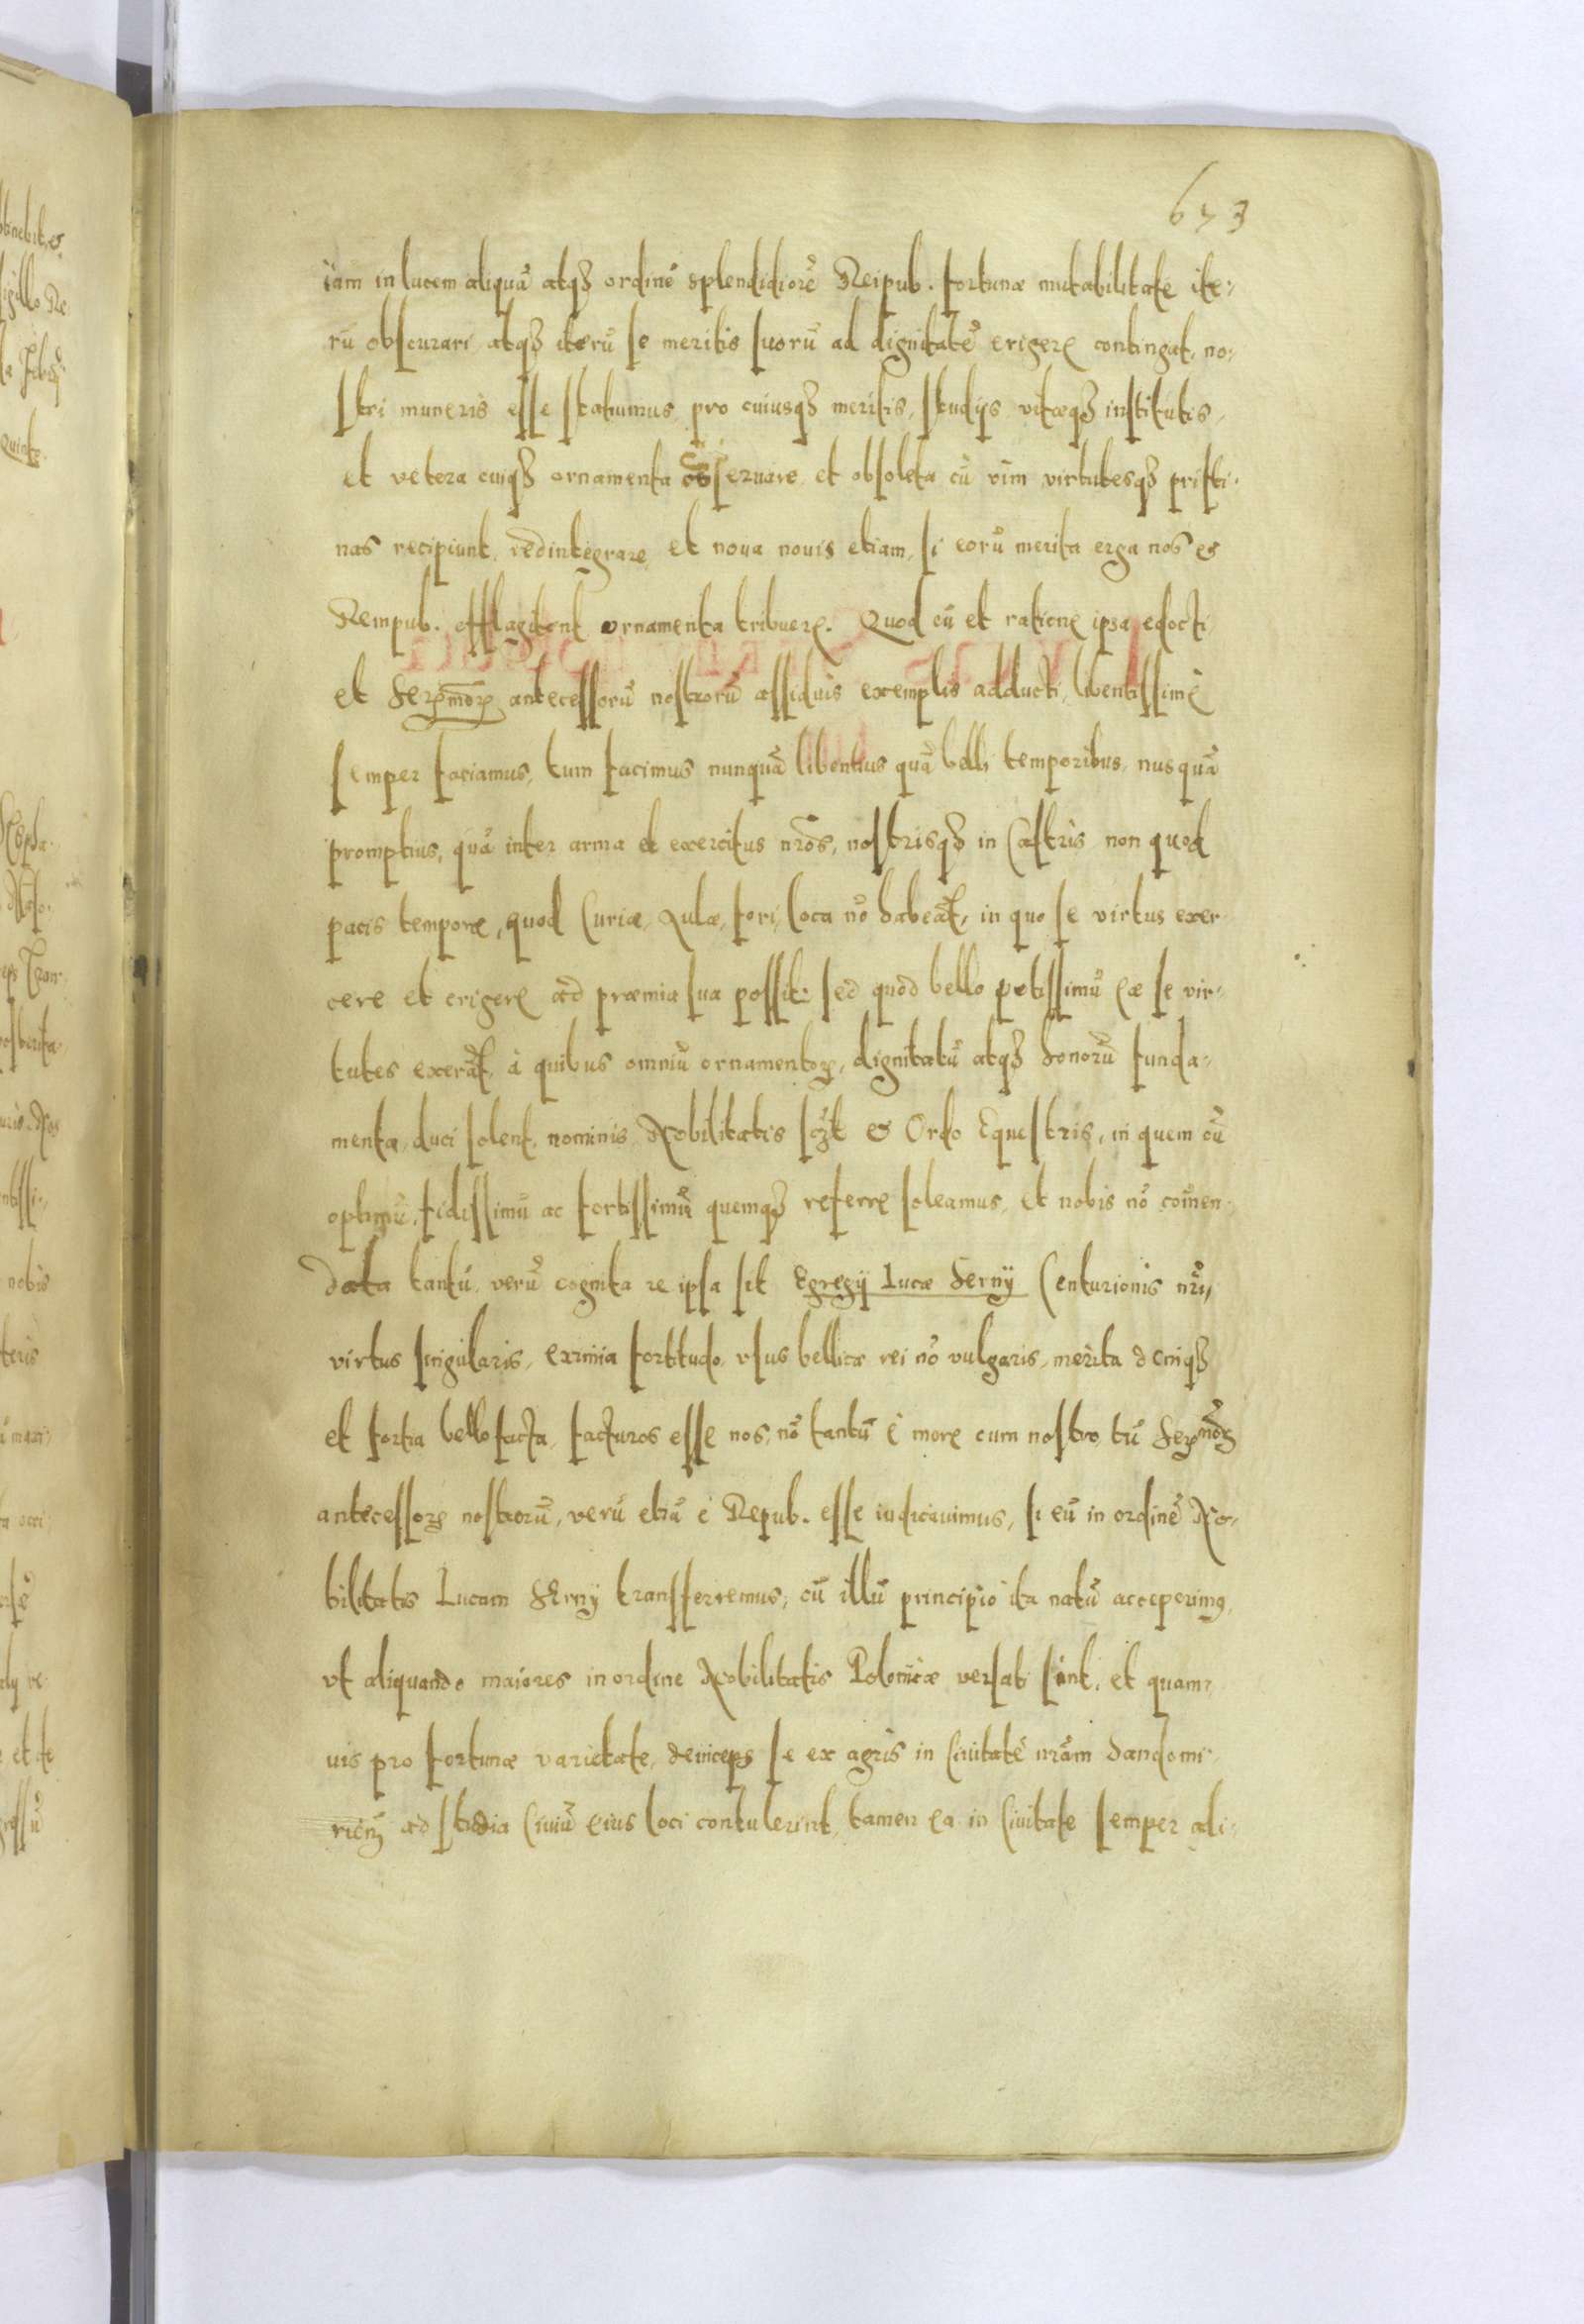 673
iam in lucem aliquā atqȝ ordinē splendidiorē Reipub. fortunæ mutabilitate ite:
rū obscurari, atqȝ iterū se meritis suorū ad dignitatē erigere contingat, no:
stri muneris esse statuimus, pro cuiusqȝ meritis, studijs vitæqȝ institutis,
et vetera cuiqȝ ornamenta cōseruare, et obsoleta cū vim virtutesqȝ pristi:
nas recipiunt, redintegrare, et noua nouis etiam, si eorū merita erga nos et
Rempub. efflagitent ornamenta tribuere. Quod cū et ratione ipsa edocti,
et antecessorū nostrorū assiduis exemplis adducti, libentissimè
semper faciamus, tum facimus nunquā libentius quā belli temporibus, nusquā
promptius, quā inter arma et exercitus nr̃os, nostrisqȝ in Castris, non quod
pacis tempore, quod Curiæ, Aulæ, fori, loca nō habeāt, in quo se virtus exer:
cere et erigere ad præmia sua possit: sed quod bello potissimū eæ se vir:
tutes exerāt, à quibus omniū ornamentoꝝ, dignitatū atqȝ honorū funda:
menta, duci solent, nominis, Nobilitatis scꝫt et Ordo Equestris, in quem cū
optimū, fidissimū ac fortissimū quemqȝ referre soleamus, et nobis nō com̄en:
data tantū, verū cognita re ipsa sit Egregij Lucæ Serny Centurionis nr̃i,
virtus singularis, eximia fortitudo, vsus bellicæ rei nō vulgaris, merita deniqȝ
et fortia bello facta, facturos esse nos, nō tantū è more cum nostro, tū
antecessoꝝ nostrorū, verū etiā è Repub. esse iudicauimus, si eū in ordinē No:
bilitatis Lucam Serny transferremus, cū illū principio ita natū acceperimꝰ,
vt aliquando maiores in ordine Nobilitatis Polonicæ versati sint, et quam:
uis pro fortunæ varietate, deinceps se ex agris in Ciuitatē nr̃am Sandomi:
rieñ ad studia Ciuiū eius loci contulerint, tamen ea in Ciuitate semper ali: